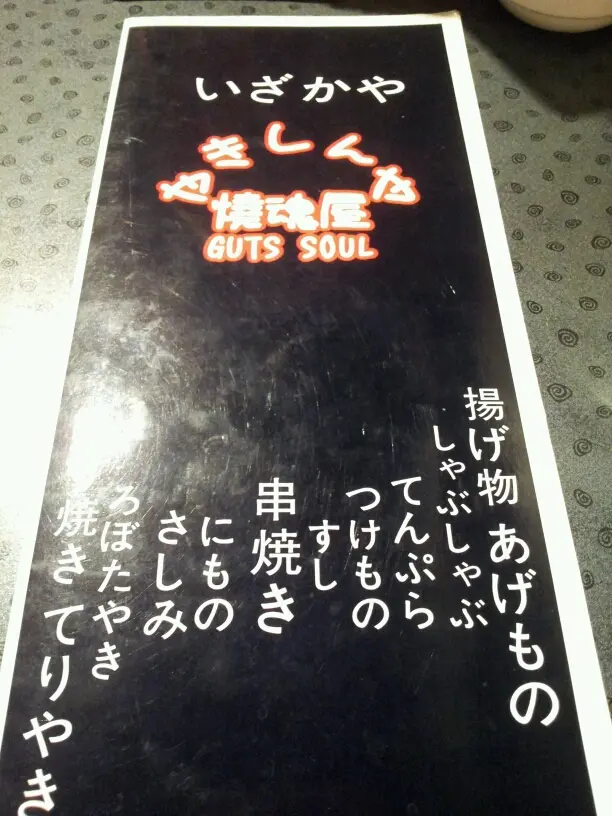 いざかや
やきしんや
燒魂屋
GUTS SOUL
揚げ物 あげもの
しゃぶしゃぶ
てんぷら
つけもの
すし
串焼き
にもの
さしみ
ろばたやき
焼き てりやき